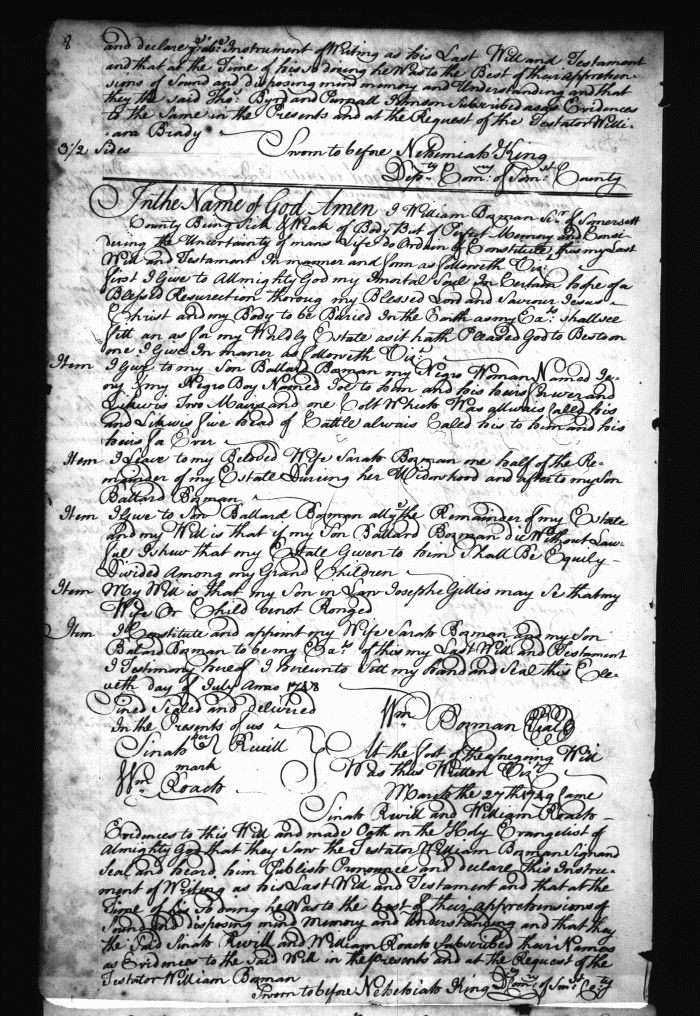 8
and declare ye. abe. Instrument of Writing as his Last Will and Testament
and that at the Time of his So doing he Was to the Best of their apprehen-
sions of Sound and disposing mind memory and Understanding and that
they the said Thos. Byrd and Purnall Johnson Subscribed as Evidences
to the Same in the Presents and at the Request of the Testator Willi-
am Brady
3 1/2 Sides
Sworn to before Nehemiah King
Depty. Comry. of Somst. County
In the Name of God Amen I William Bozman Sr. of Somersett
County Being Sick & Weak of Body But of Perfect Memory and Consi-
dering the Uncertainty of mans Life do Ordain & Constitute this my Last
Will and Testament In manner and form as followeth Viz.
first I Give to Allmighty God my Imortal Soul In Certain hope of a
Blessed Resurection thoroug my Blessed Lord and Saviour Jesus
Christ and my Body to be Baried In the Earth as my Exrs. shall see
fitt an as for my Worldly Estate as it hath Pleased God to Bestow on
me I Give In maner as followeth Viz.
Item I Give to my Son Ballard Bozman my Negro Woman Named
my Negro Boy Named Joe to him and his heirs for ever and
Likewis Two Mairs and one Colt Which Was allwais Called his
and Likewis five head of Cattle alwais Caled his to him and his
heirs for Ever
Item I Leave to my Beloved Wife Sarah Bozman one half of the Re-
mainder of my Estate During her Widowhood and after to my Son
Ballard Bozman
Item I Give to Son Ballard Bozman all ye the Remainder of my Estate
and my Will is that if my Son Ballard Bozman die Without Law-
ful Ishew that my Estate Given to him Shall Be Equily
Divided Among my Grand Children
Item My Will is that my Son in Law Joseph Gillis may Se that my
Wife Or Child be not Ronged
Item I Constitute and appoint my Wife Sarah Bozman and my Son
Balard Bozman to be my Exrs. of this my Last Will and Testament
I Testimony hereof I hereunto Sett my hand and Seal this Ele-
veth day of July Anno 1748
Sined Sealed and delivered
In the Presents of us
Wm. Bozman Seal
Sinah her Rwill
mark
Wm. Roach
At the foot of the foregoing Will
Was thus Written Viz.
March the 27th 1749 Came
Sinah Rwill and William Roach
Evidences to this Will and made Oath on the Holy Evangelist of
Almighty God that they Saw the Testator William Bozman Sign and
Seal and heard him Publish Pronounce and declare This Instru-
ment of Writing as his Last Will and Testament and that at the
Time of his So doing he Was to the best of their apprehensions of
Sound and disposing mind Memory and Understanding and that they
the Said Sinah Rwill and William Roach Subscribed their Names
as Evidences to the Said Will in the presents and at the Request of the
Testator William Bozman
Sworn to before Nehehiah King Dty. Comry. of Somst. Coty.